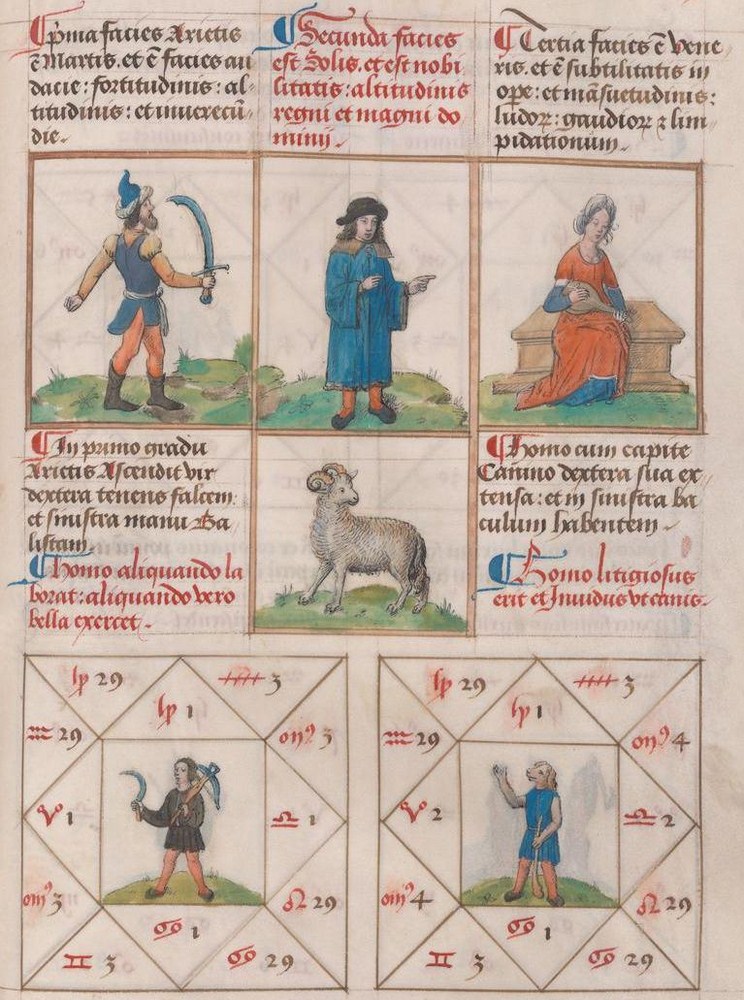 Pͥma facies Arietis
ē Martis. et ē facies au
dacie: fortitudinis: al-
titudinis: et inuerecū-
die.
Secunda facies
est Solis. et est nobi
litatis: altitudinis
regni et magni do
minij.
Tertia facies ē Vene-
ris. et ē subtilitatis in
oꝑe: et māsuetudinis:
ludoꝝ: gaudioꝝ ⁊ lim-
pidationum.
In primo gradu
Arietis Ascendit vir
dextera tenens falcem:
et sinistra manu Ba
listam.
Homo aliquando la
borat: aliquando vero
bella exercet.
Homo cum capite
Canino dextera sua ex
tensa: et in sinistra ba
culum habentem.
Homo litigiosus
erit et Inuidus vt canis.
♑ 29
♐ 3
♑ 1
♒ 29
♏ 3
♈ 1
♎ 1
♉ 3
♌ 29
♋ 1
♊ 3
♋ 29
♑ 29
♐ 3
♑ 1
♒ 29
♏ 4
♈ 2
♎ 2
♉ 4
♌ 29
♋ 1
♊ 3
♋ 29